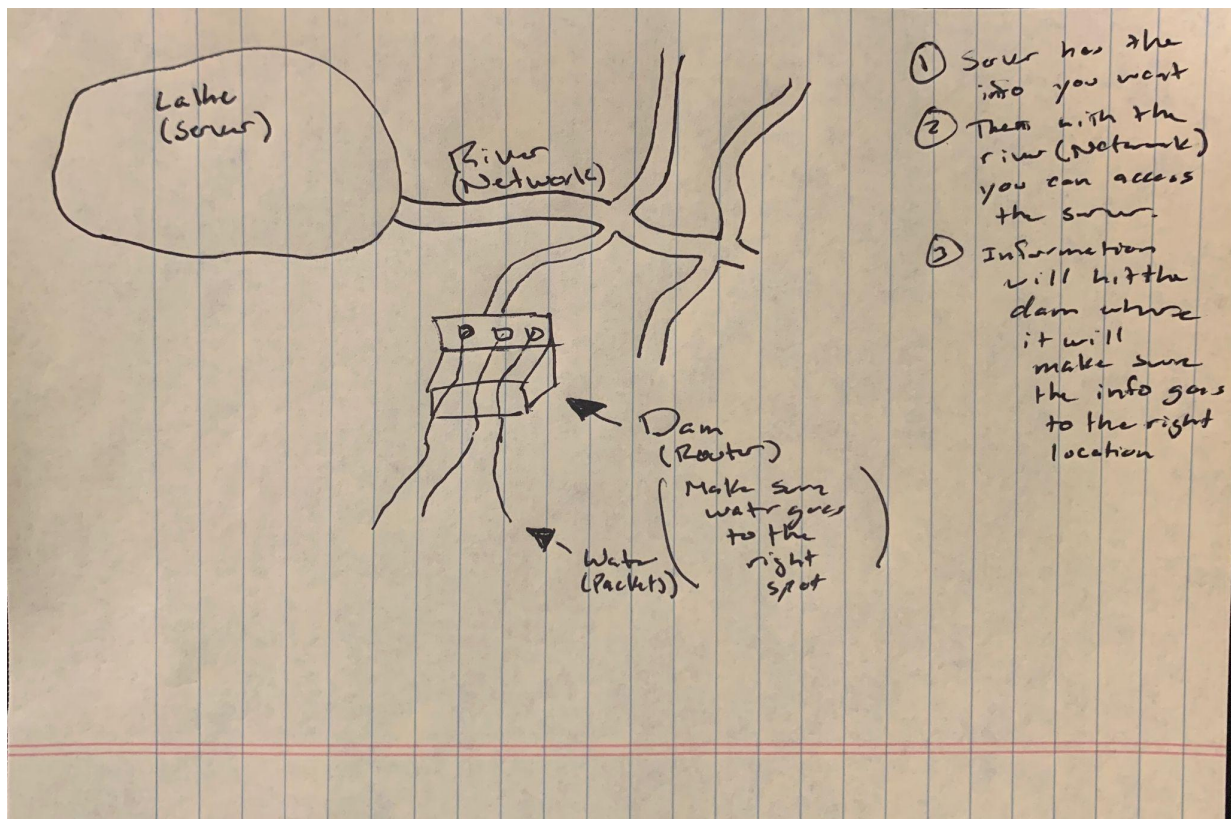 Lake
(Server)
River
(Network)
Dam
(Router)
(Make sure
water goes
to the
right
spot)
Water
(Packets)
① Server has the
info you want
② Then with the
river (Network)
you can access
the server.
③ Information
will hit the
dam where
it will
make sure
the info goes
to the right
location